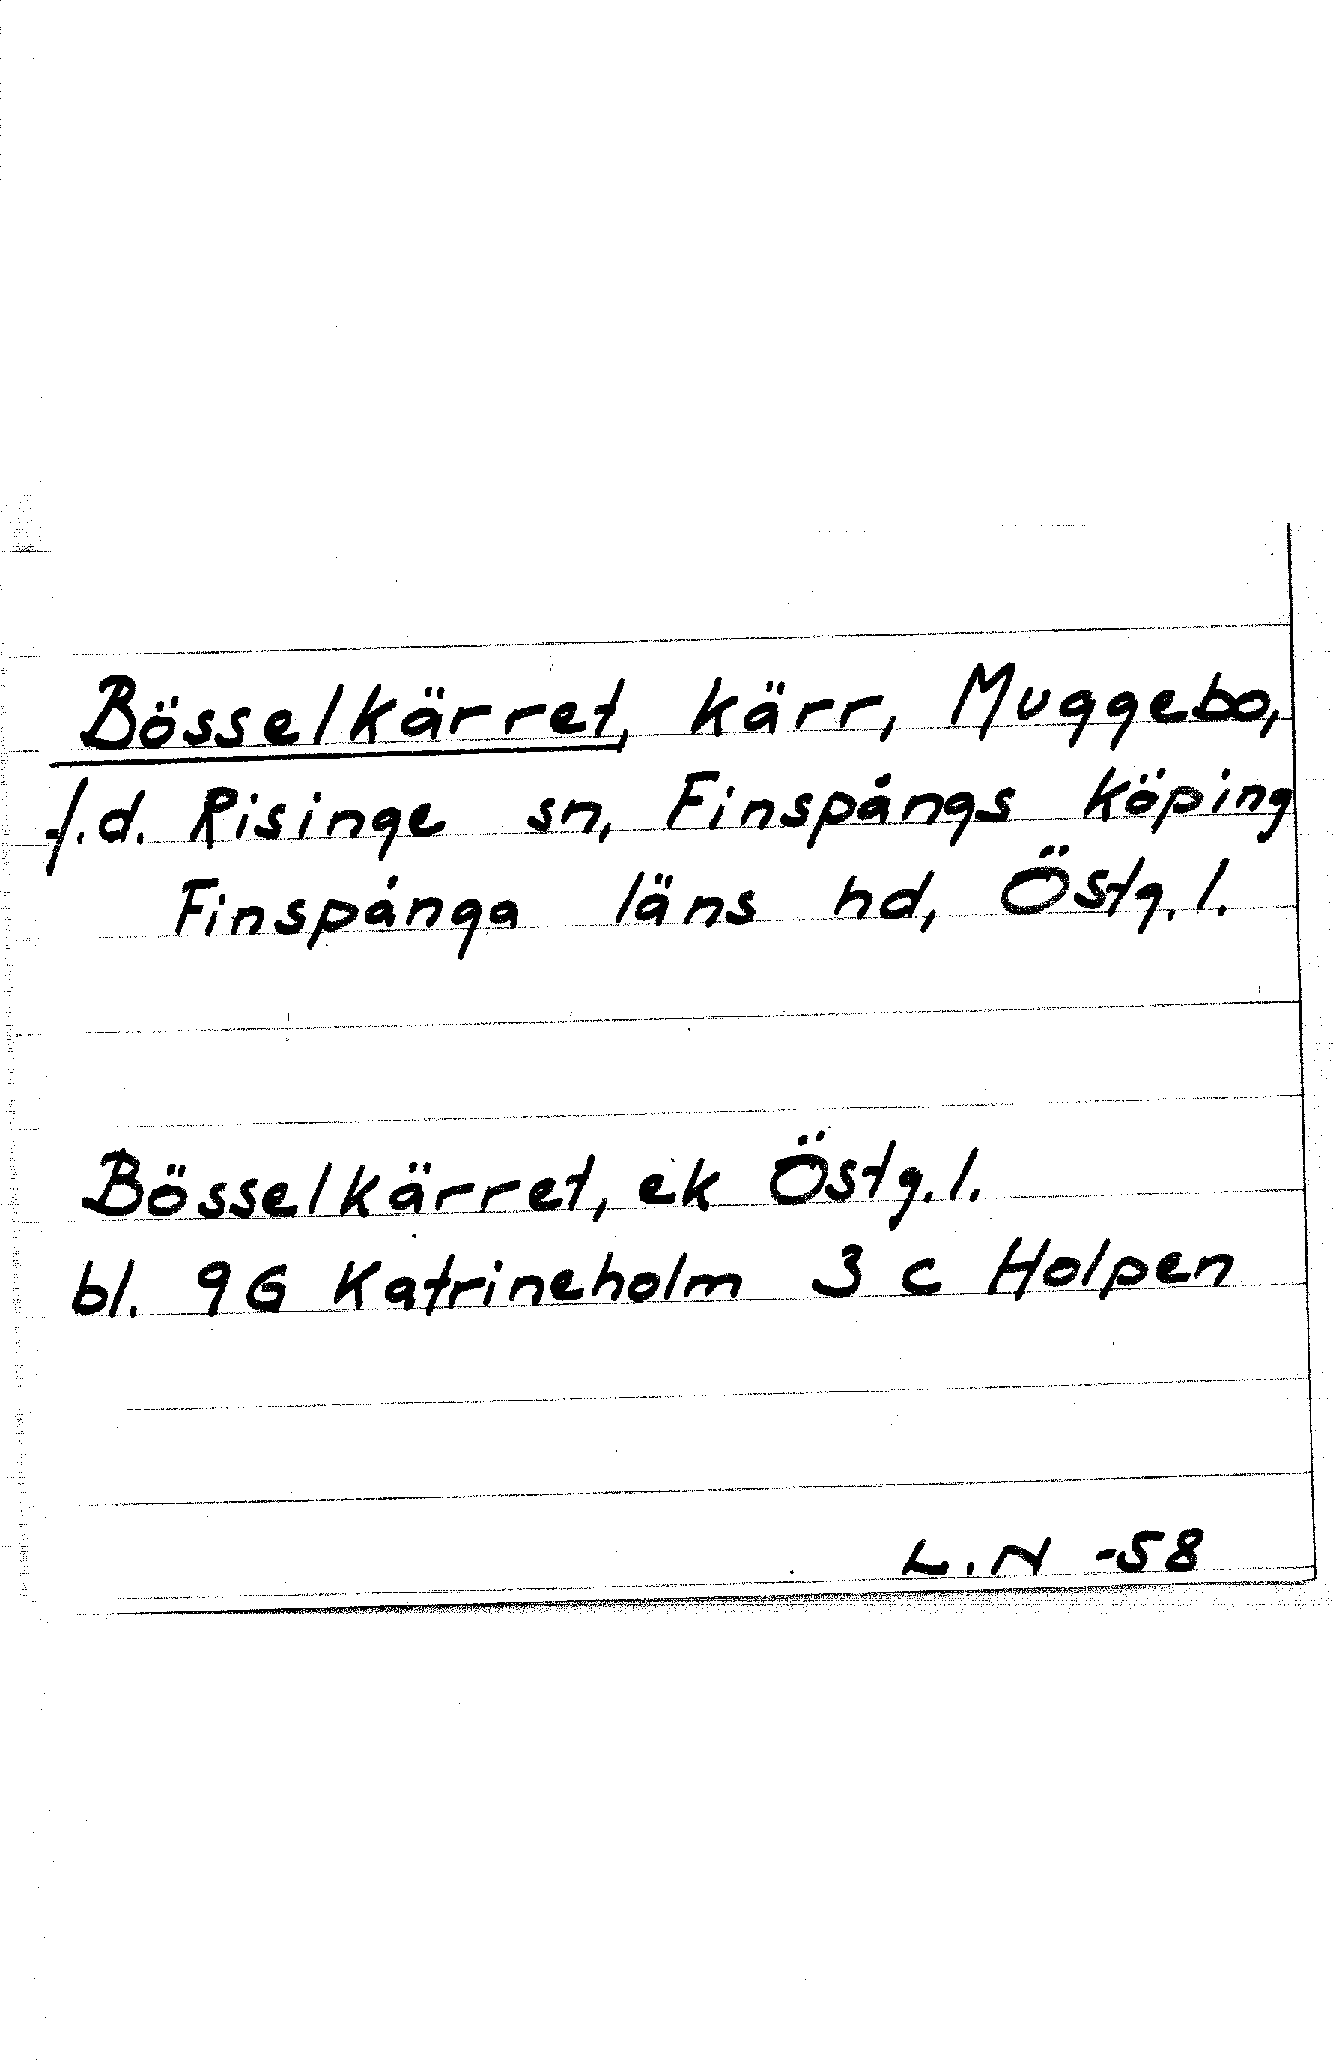 Bösselkärret, kärr, Muggebo,
f.d. Risinge sn, Finspångs köping
Finspånga läns hd, Östg.l.
Bösselkärret, ek Östg.l.
bl. 9G Katrineholm 3 c Holpen
L.N -58